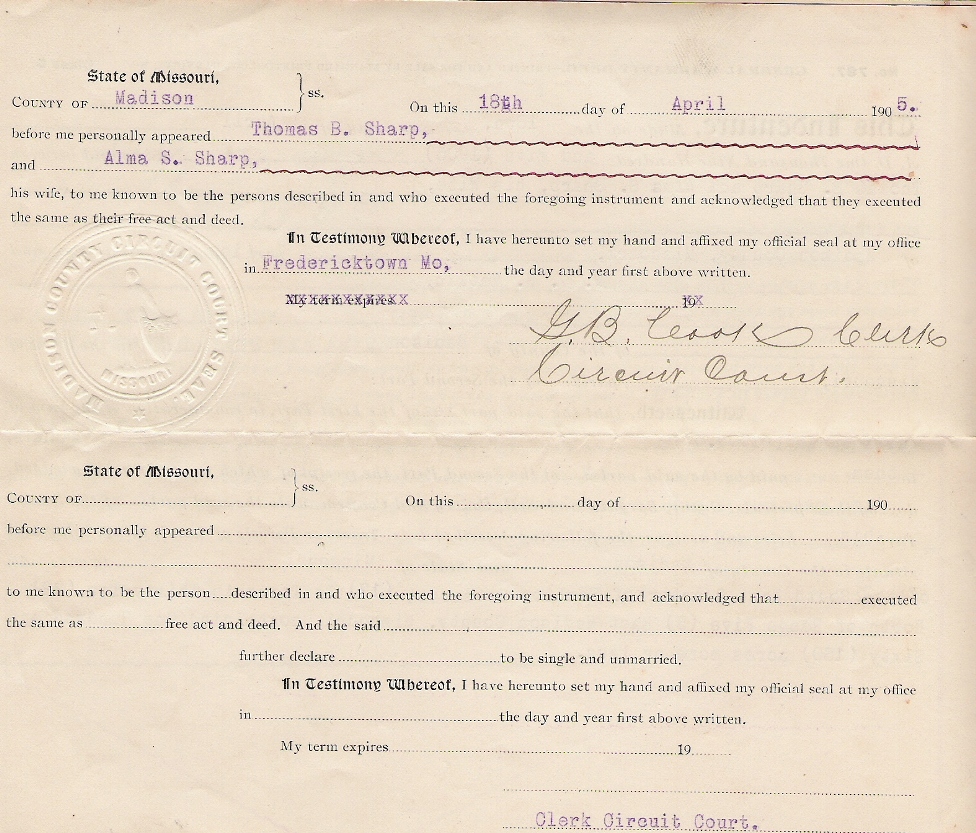 State of Missouri,
COUNTY OF Madison ss. On this 18th day of April 1905.
before me personally appeared Thomas B. Sharp,
and Alma S. Sharp,
his wife, to me known to be the persons described in and who executed the foregoing instrument and acknowledged that they executed
the same as their free act and deed.
In Testimony Whereof, I have hereunto set my hand and affixed my official seal at my office
in Fredericktown Mo, the day and year first above written.
My term expires 19
G.B. Cook Clerk
Circuit Court.
MADISON COUNTY CIRCUIT COURT SEAL.
MISSOURI
State of Missouri,
COUNTY OF ss. On this day of 190
before me personally appeared
to me known to be the person described in and who executed the foregoing instrument, and acknowledged that executed
the same as free act and deed. And the said
further declare to be single and unmarried.
In Testimony Whereof, I have hereunto set my hand and affixed my official seal at my office
in the day and year first above written.
My term expires 19
Clerk Circuit Court.